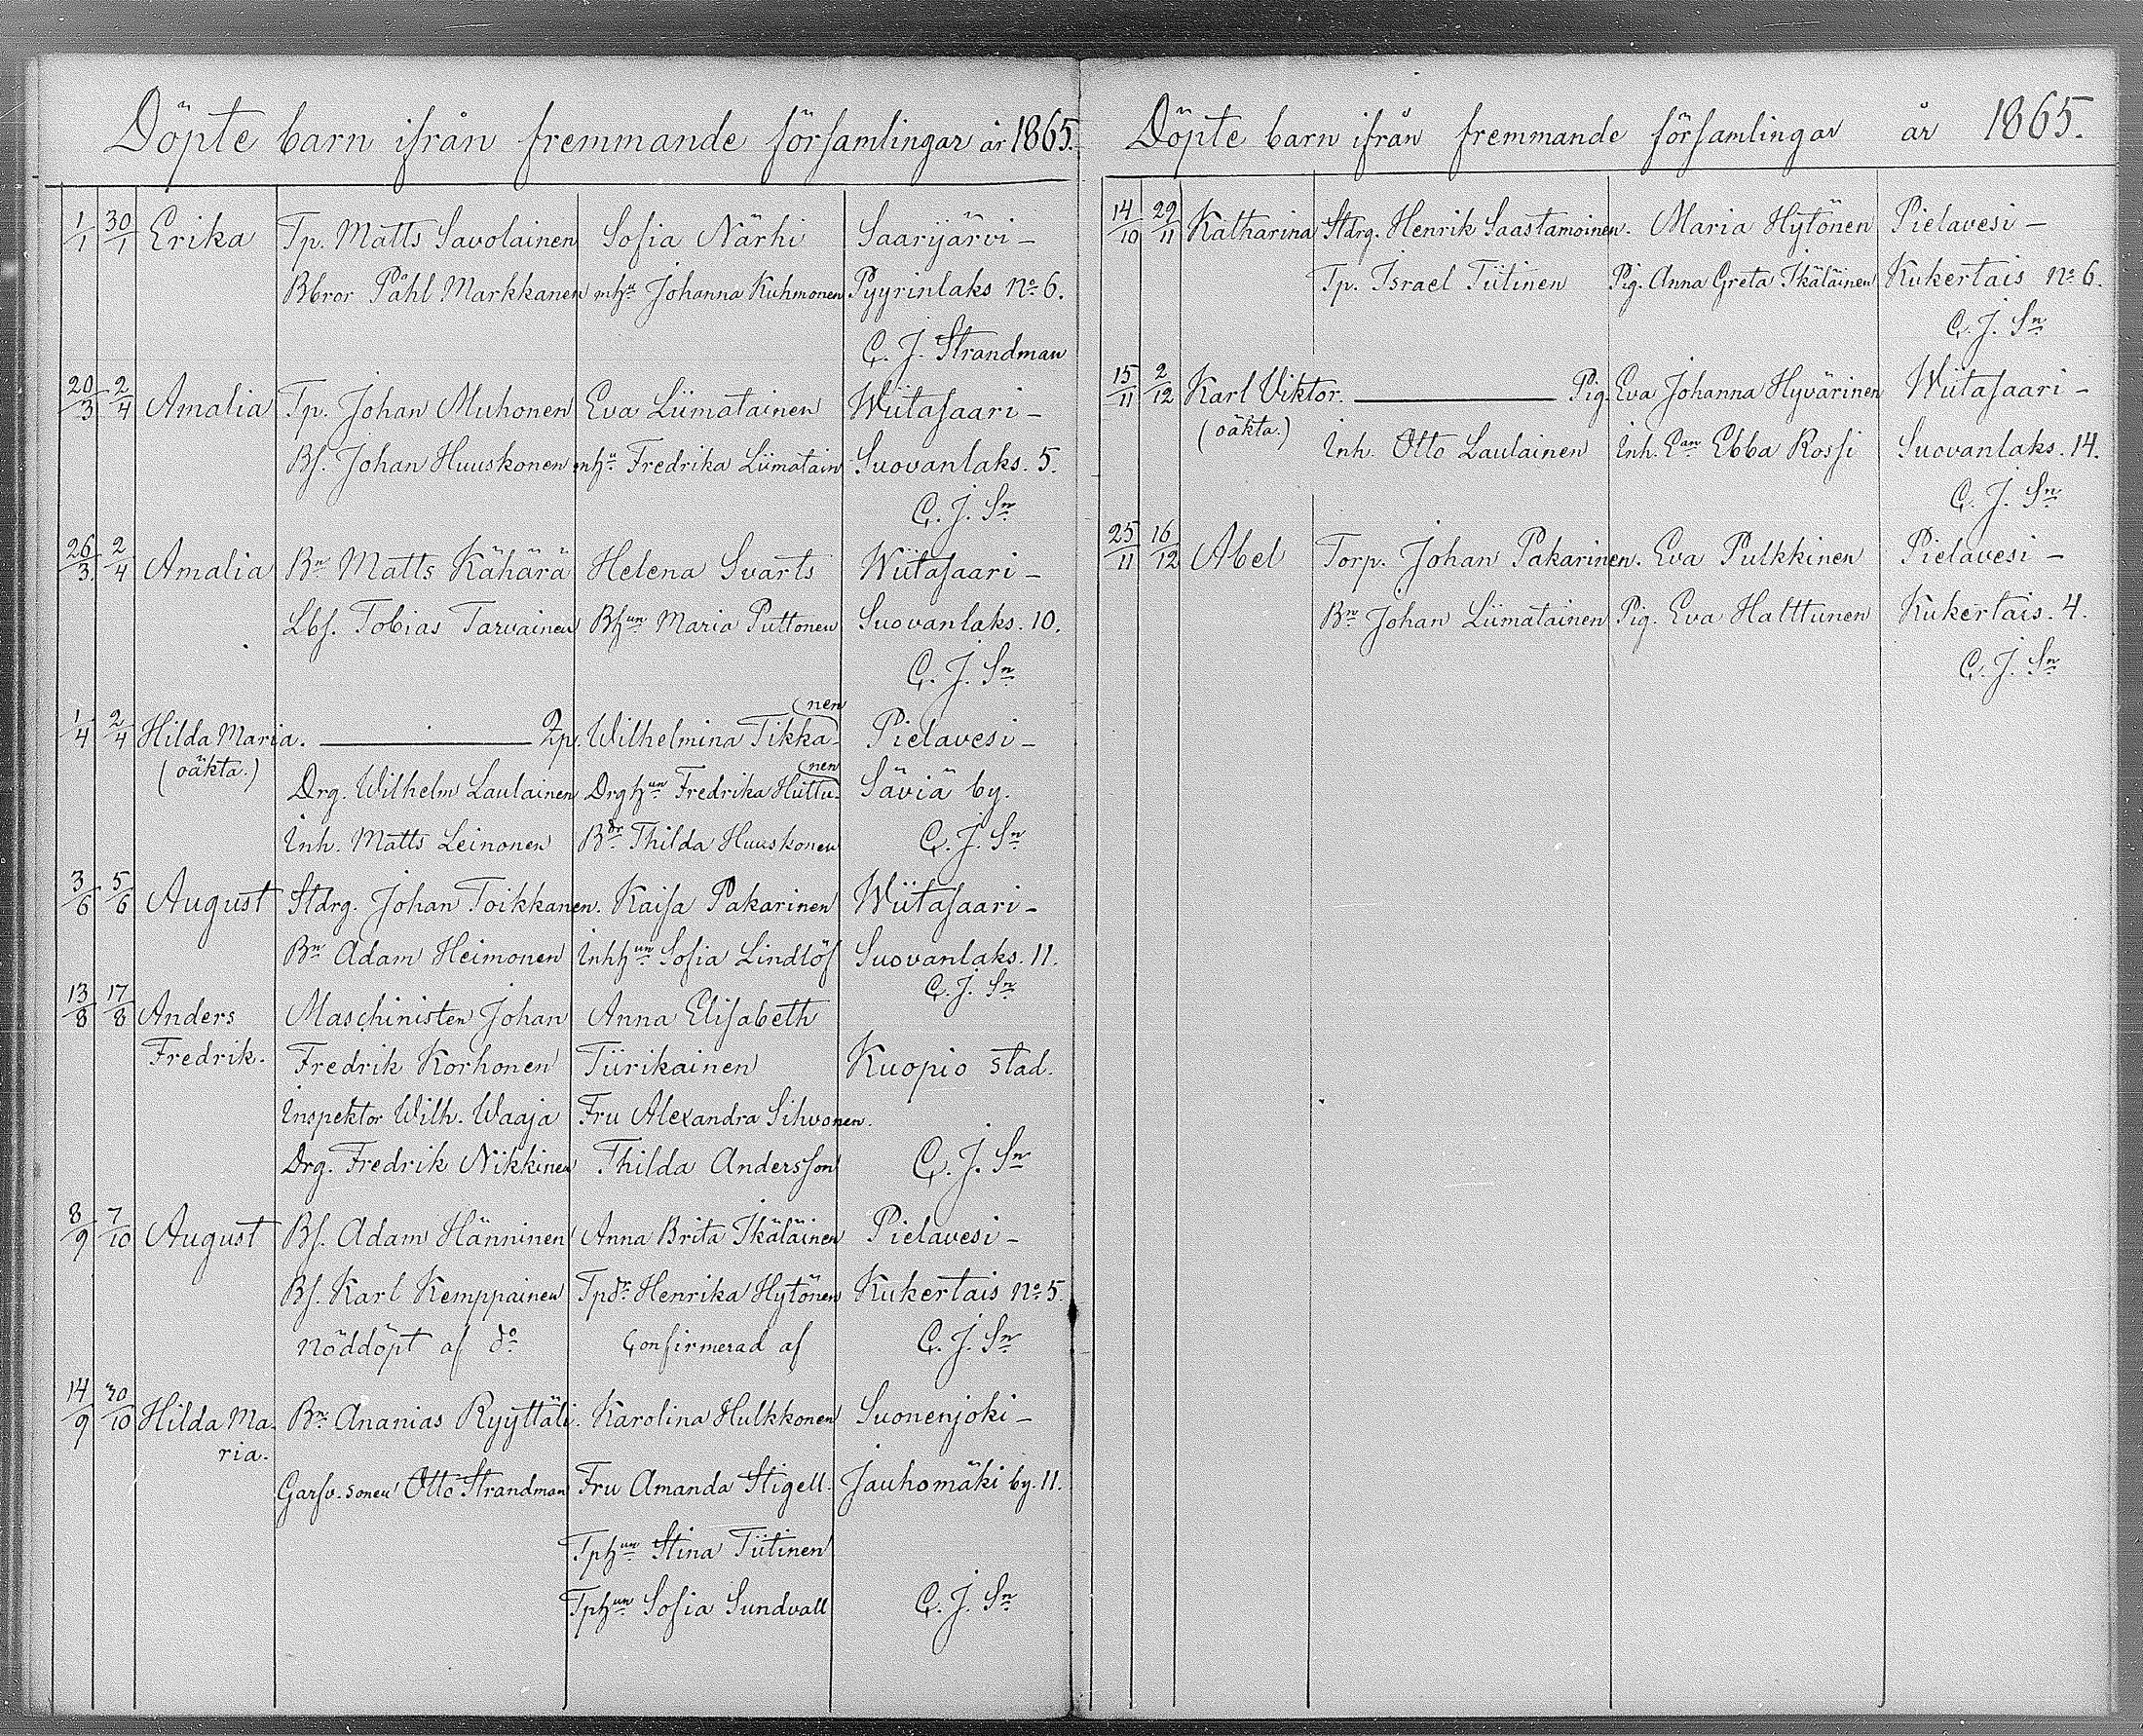 Döpte barn ifrån fremmande församlingar år 1865.
1/1 30/1 Erika Tp. Matts Savolainen Sofia Närhi Saarijärvi –
Bbror Påhl Markkanen mhu Johanna Kuhmonen Pyyrinlaks No 6.
C. J. Strandman
20/3 2/4 Amalia Tp. Johan Muhonen Eva Liimatainen Wiitasaari –
Bs. Johan Huuskonen mhu Fredrika Liimatain Suovanlaks. 5.
C. J. Sn
26/3 2/4 Amalia Bn Matts Kähärä Helena Svarts Wiitasaari –
Lbs. Tobias Tarvainen Bhun Maria Puttonen Suovanlaks. 10.
C. J. Sn
1/4 2/4 Hilda Maria. — Qp. Wilhelmina Tikkanen Pielavesi –
(oäkta.) Drg. Wilhelm Laulainen Drghun Fredrika Huttunen Säviä by.
Inh. Matts Leinonen Bdr Thilda Huuskonen C. J. Sn
3/6 5/6 August Stdrg. Johan Toikkanen. Kaisa Pakarinen Wiitasaari –
Bn Adam Heimonen Inhhun Sofia Lindlöf Suovanlaks. 11.
C. J. Sn
13/8 17/8 Anders Maschinisten Johan Anna Elisabeth
Fredrik. Fredrik Korhonen Tiirikainen Kuopio stad.
Inspektor Wilh. Waaja Fru Alexandra Sihvonen.
Drg. Fredrik Nikkinen Thilda Andersson C. J. Sn
8/9 7/10 August Bs. Adam Hänninen Anna Brita Ikäläinen Pielavesi –
Bs. Karl Kemppainen Tpdr Henrika Hytönen Kukertais No 5.
nöddöpt af do Confirmerad af C. J. Sn
14/9 30/10 Hilda Ma. Bn Ananias Ryyttäli. Karolina Hulkkonen Suonenjoki –
ria.
Garfv. sonen Otto Strandman Fru Amanda Stigell. Jauhomäki by. 11.
Tphun Stina Tiitinen
Tphun Sofia Sundvall C. J. Sn
Döpte barn ifrån fremmande församlingar år 1865.
14/10 29/11 Katharina Stdrg. Henrik Saastamoinen. Maria Hytönen Pielavesi –
Tp. Israel Tiitinen Pig. Anna Greta Ikäläinen Kukertais No 6.
C. J. Sn
15/11 2/12 Karl Viktor. — Pig. Eva Johanna Hyvärinen Wiitasaari –
(oäkta.) Inh. Otto Laulainen Inh. Ean Ebba Rossi Suovanlaks. 14.
C. J. Sn
25/11 16/12 Abel Torp. Johan Pakarinen. Eva Pulkkinen Pielavesi –
Bn Johan Liimatainen Pig. Eva Halttunen Kukertais. 4.
C. J. Sn